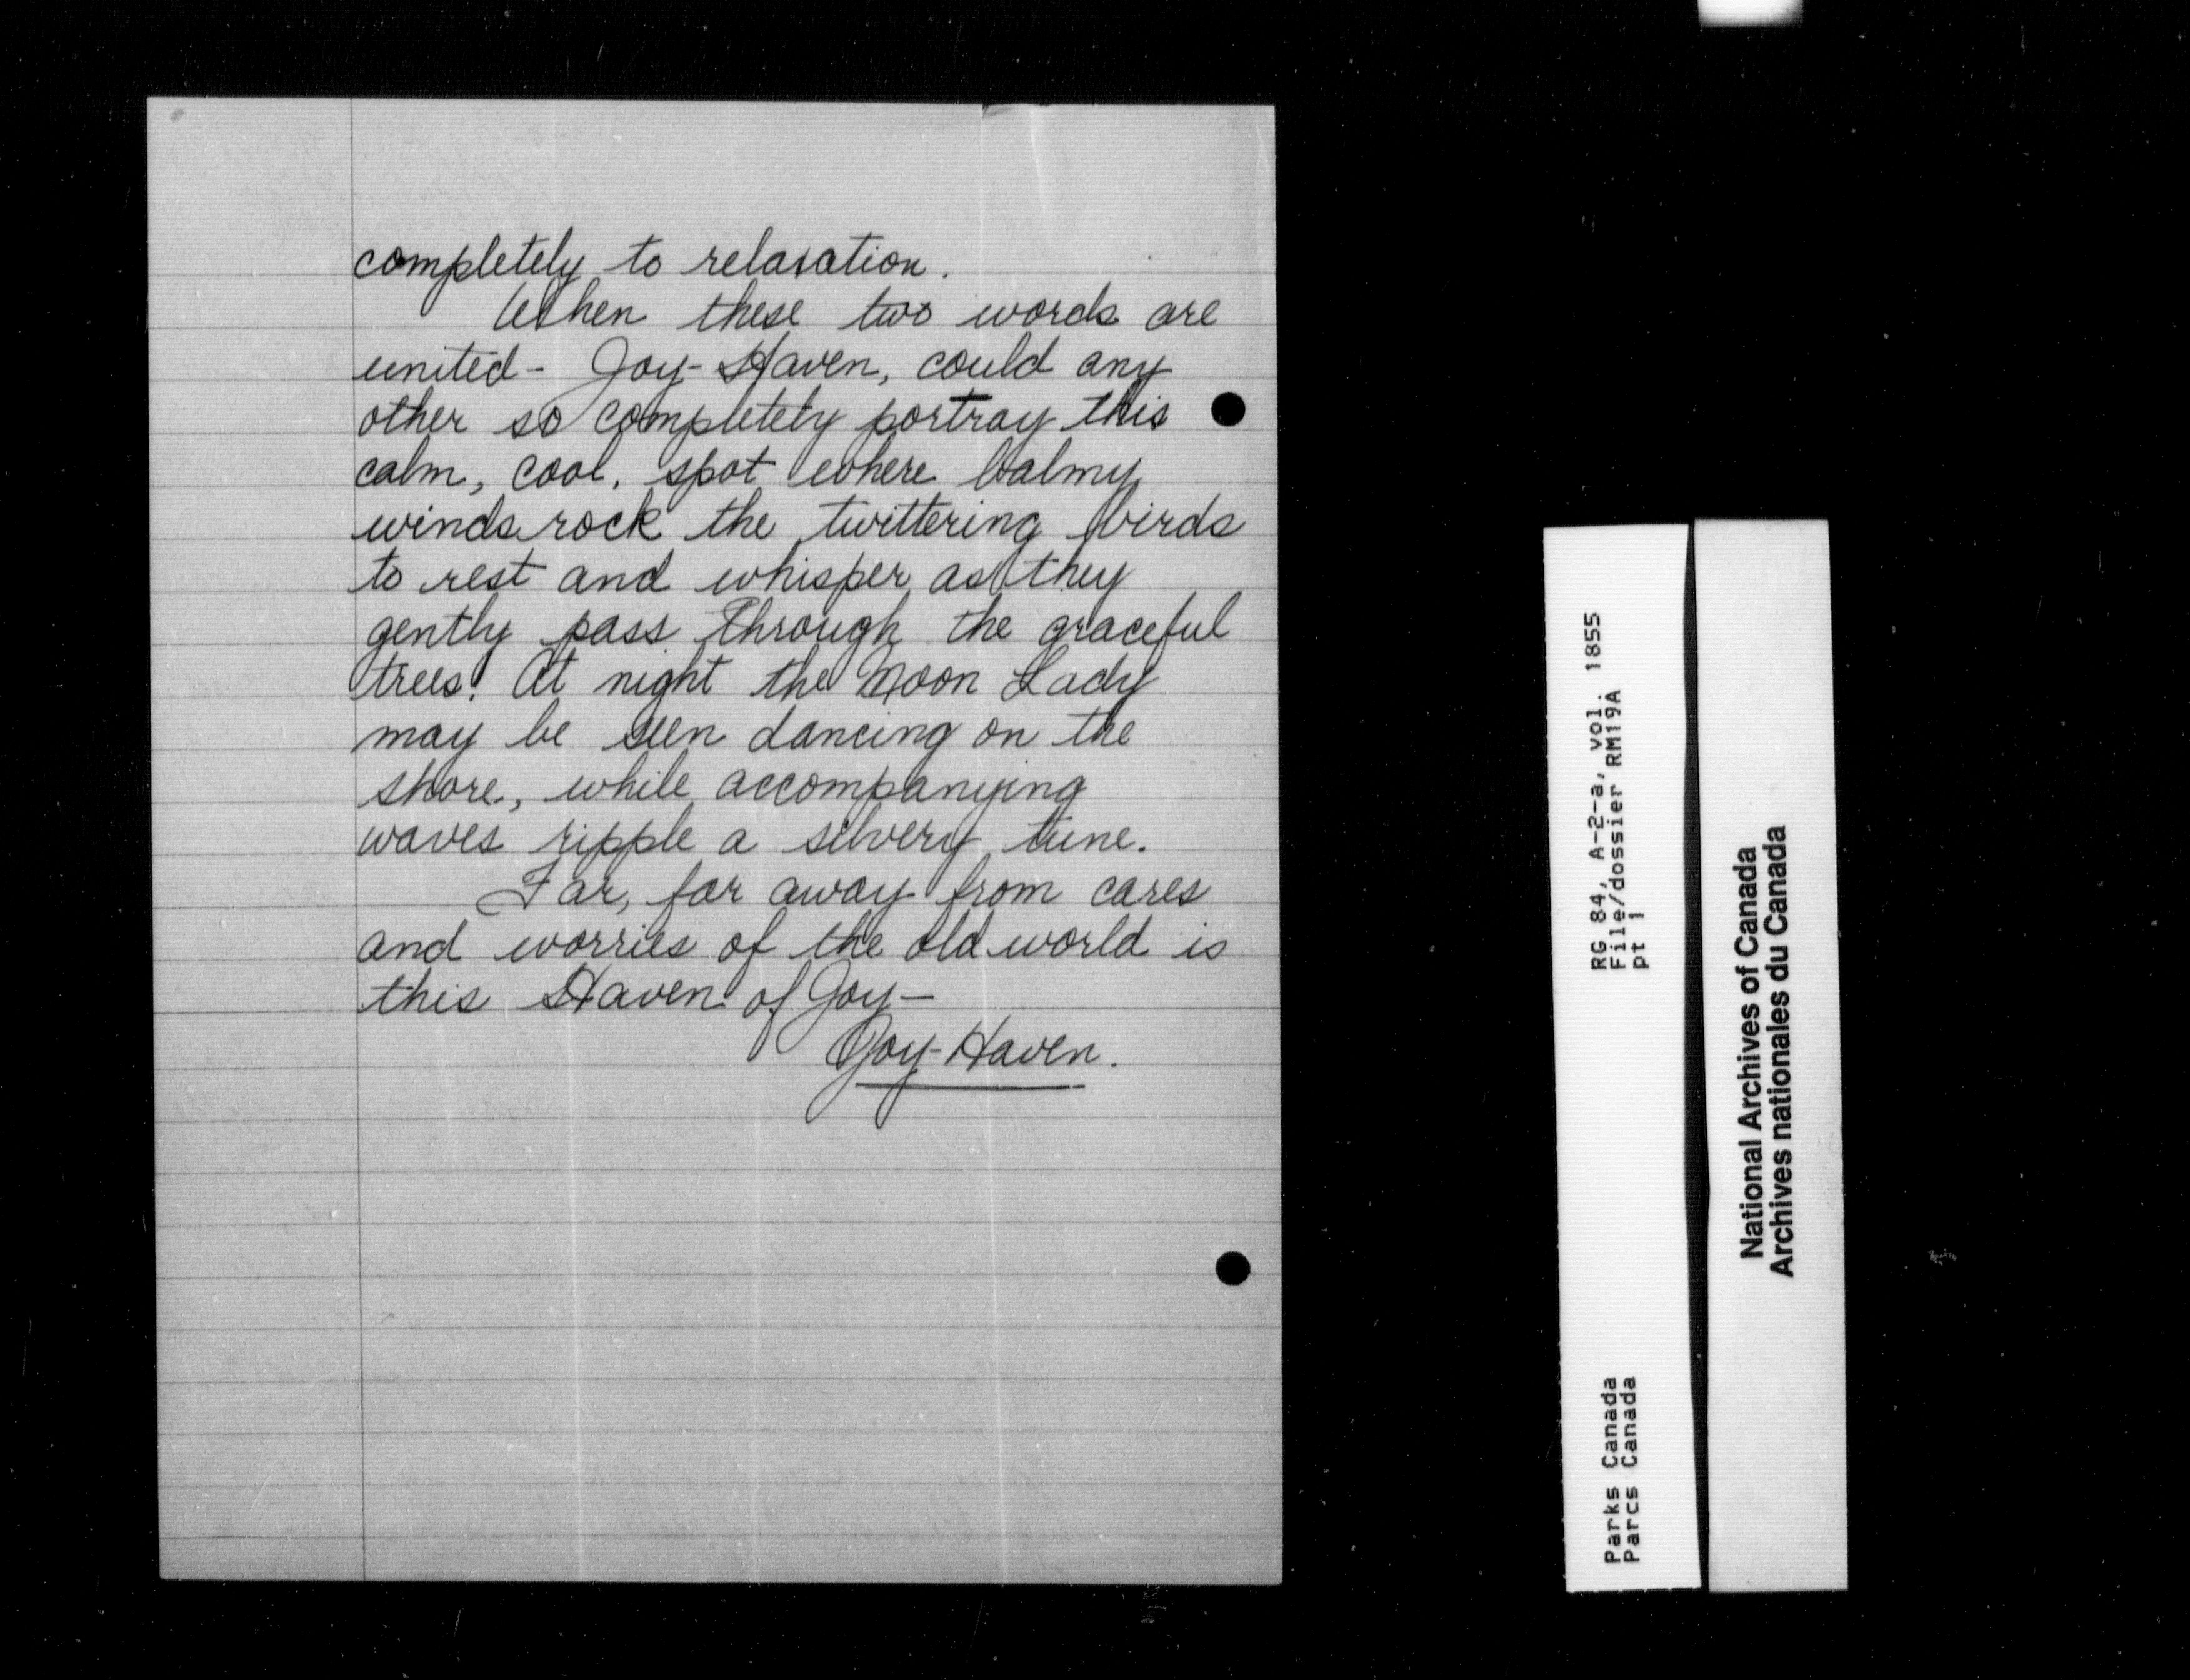 completely to relaxation.
When these two words are
united - Joy-Haven, could any
other so completely portray this
calm, cool, spot where balmy
winds rock the twittering birds
to rest and whisper as they
gently pass through the graceful
trees. At night the Moon Lady
may be seen dancing on the
shore, while accompanying
waves ripple a silvery tune.
Far, far away from cares
and worries of the old world is
this Haven of Joy—
Joy-Haven.
RG 84, A-2-a, vol. 1855
File/dossier RM19A
pt 1
Parks Canada
Parcs Canada
National Archives of Canada
Archives nationales du Canada